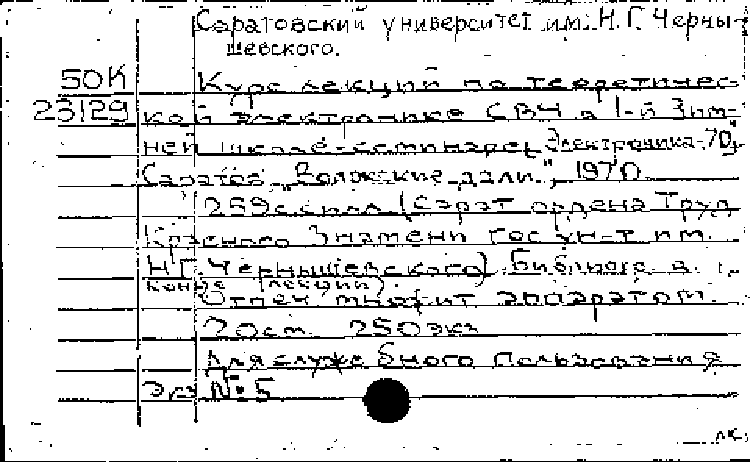 Саратовский университет им. Н.Г. Черны-
шевского.
50К Курс лекций по теоретичес-
23129 кой электронике СВЧ в 1-й Зим-
ней школе-семинаре „Электроника-70".
Саратов, „Волжские дали", 1970.
259 с. с илл. (Сарат. ордена Труд.
Красного Знамени гос. ун-т им.
Н.Г. Чернышевского). Библиогр. в
конце лекций).
Отпеч. множит. аппаратом.
20 см. 250 экз.
Для служебного пользования
Экз. № 5
лк.